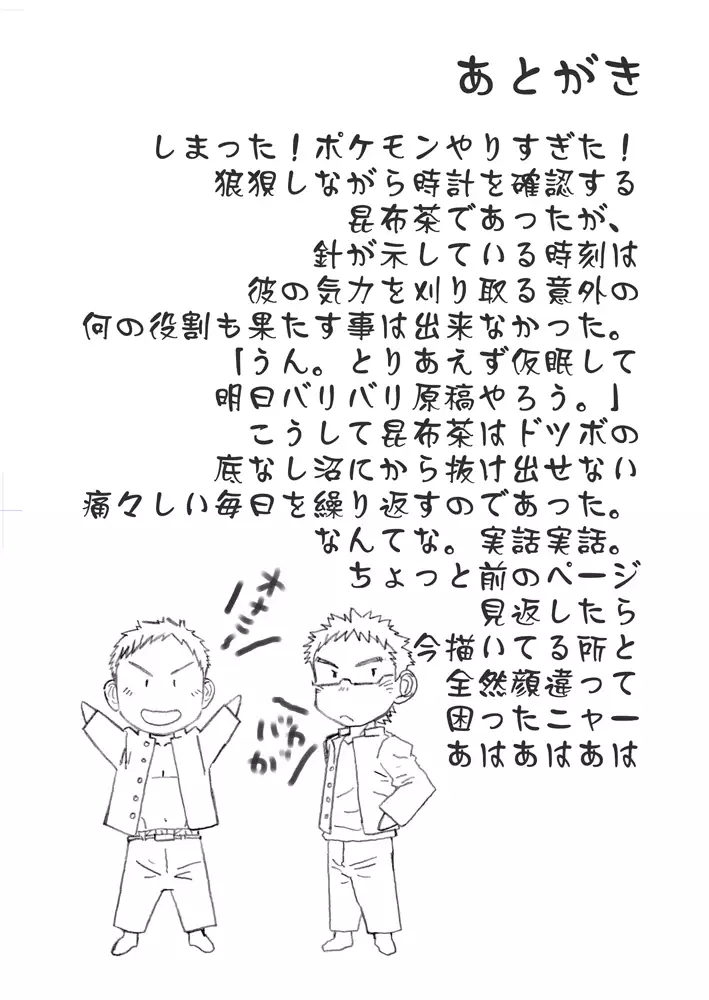 あとがき
しまった！ポケモンやりすぎた！
狼狽しながら時計を確認する
昆布茶であったが、
針が示している時刻は
彼の気力を刈り取る意外の
何の役割も果たす事は出来なかった。
「うん。とりあえず仮眠して
明日バリバリ原稿やろう。」
こうして昆布茶はドツボの
底なし沼にから抜け出せない
痛々しい毎日を繰り返すのであった。
なんてな。実話実話。
ちょっと前のページ
見返したら
今描いてる所と
全然顔違って
困ったニャー
あはあはあは
バカが